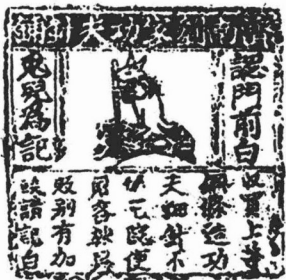 濟南劉家功夫針鋪
認門前白
兔兒爲記
收買上等
鋼條造功
夫細針不
使
用
販别有加
饒請記白